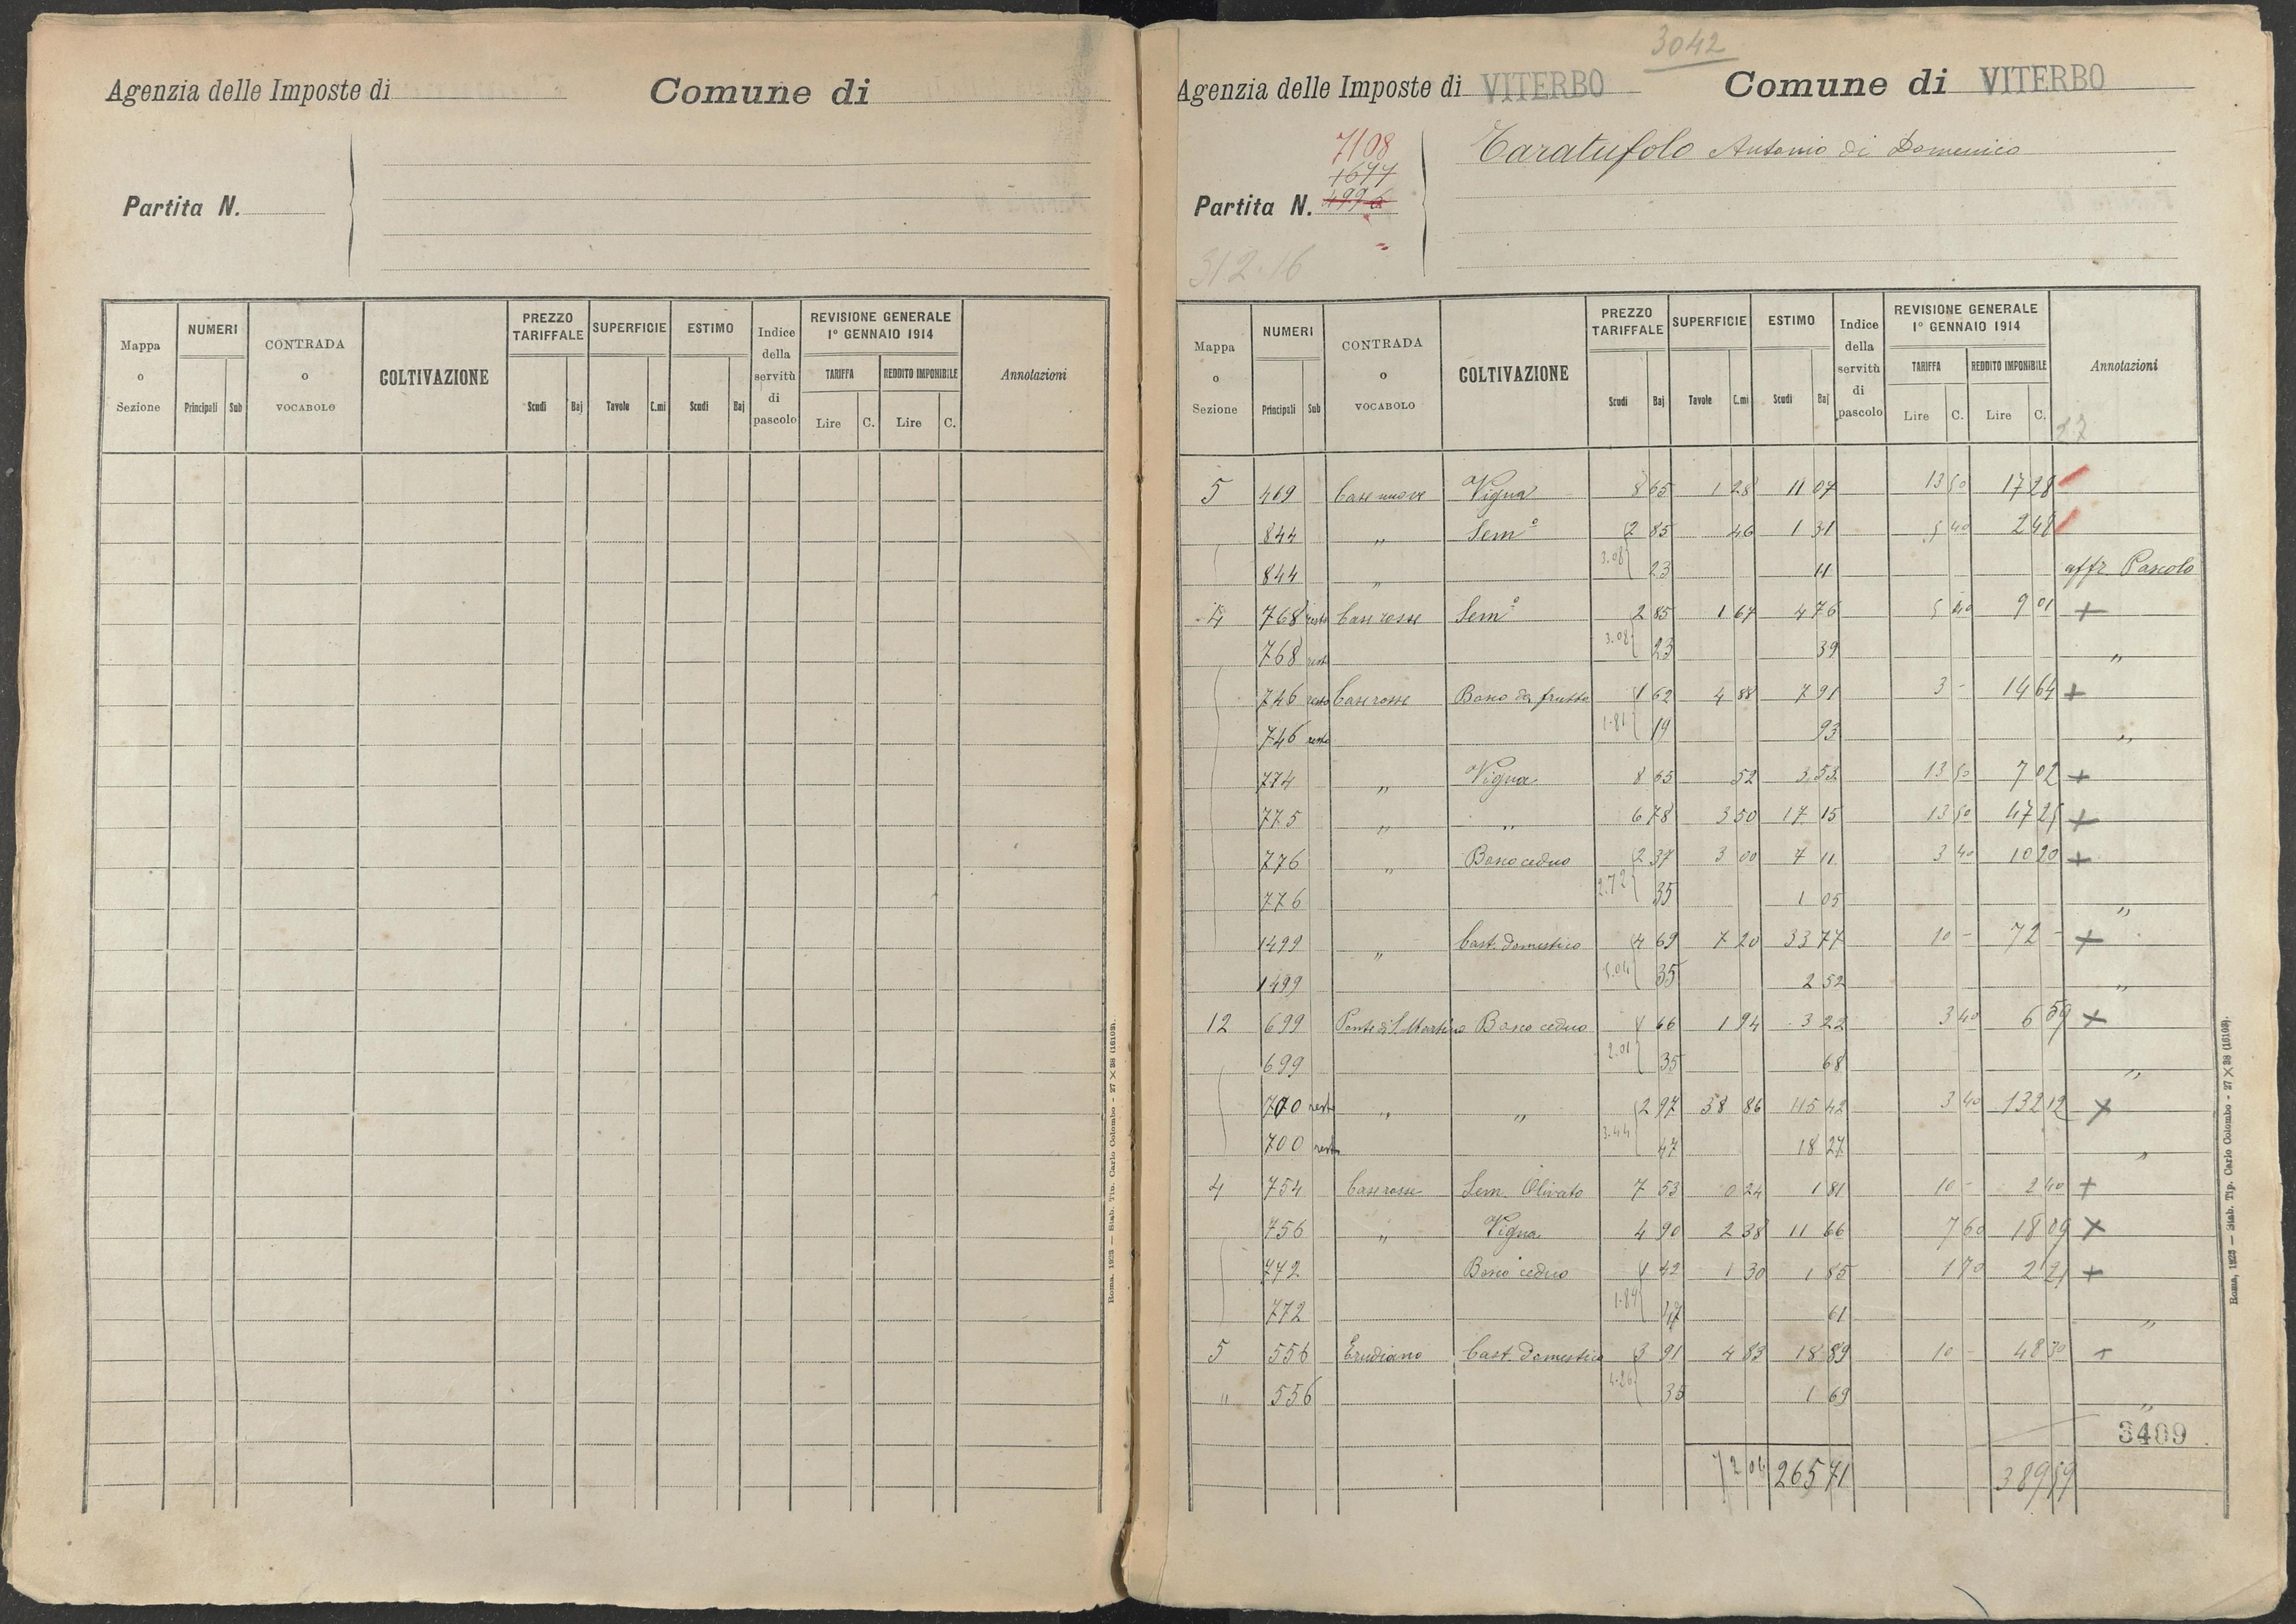 Agenzia delle Imposte di
Comune di
Partita N.
Mappa o Sezione
NUMERI
Principali Sub
CONTRADA o VOCABOLO
COLTIVAZIONE
PREZZO TARIFFALE
Scudi Baj
SUPERFICIE
Tavole C.mi
ESTIMO
Scudi Baj
Indice della servitù di pascolo
REVISIONE GENERALE 1° GENNAIO 1914
TARIFFA
Lire C.
REDDITO IMPONIBILE
Lire C.
Annotazioni
Roma, 1923 — Stab. Tip. Carlo Colombo - 27 × 38 (16103).
3042
Agenzia delle Imposte di VITERBO
Comune di VITERBO
7108
1677
4996
Partita N.
312.16
Taratufolo Antonio di Domenico
Mappa o Sezione
NUMERI
Principali Sub
CONTRADA o VOCABOLO
COLTIVAZIONE
PREZZO TARIFFALE
Scudi Baj
SUPERFICIE
Tavole C.mi
ESTIMO
Scudi Baj
Indice della servitù di pascolo
REVISIONE GENERALE 1° GENNAIO 1914
TARIFFA
Lire C.
REDDITO IMPONIBILE
Lire C.
Annotazioni
27
5 469 Case nuove Vigna 8 65 1 28 11 07 13 50 17 28
844 " Sem° 2 85 46 1 31 5 40 2 48
844 " 3.08 23 11 affr. Pascolo
4 768 resto Case rosse Sem° 2 85 1 67 4 76 5 40 9 01 +
768 resto 3.08 23 39 "
746 resto Case rosse Bosco da frutto 1 62 4 88 7 91 3 - 14 64 +
746 resto 1.81 19 93 "
774 " Vigna 8 65 52 3 53 13 50 7 02 +
775 " " 6 78 3 50 17 15 13 50 47 25 +
776 " Bosco ceduo 2 37 3 00 7 11 3 40 10 20 +
776 2.72 35 1 05 "
1499 " Cast. domestico 4 69 7 20 33 77 10 - 72 - +
1499 5.04 35 2 52 "
12 699 Ponte di S. Martino Bosco ceduo 1 66 1 94 3 22 3 40 6 59 +
699 2.01 35 68 "
700 resto " " 2 97 38 86 115 42 3 40 132 12 +
700 resto 3.44 47 18 27 "
4 754 Case rosse Sem. Olivato 7 53 0 24 1 81 10 - 2 40 +
756 " Vigna 4 90 2 38 11 66 7 60 18 09 +
772 Bosco ceduo 1 42 1 30 1 85 1 70 2 21 +
772 1.89 47 61 "
5 556 Cast. domestico 3 91 4 83 18 89 10 - 48 30 +
" 556 4.26 35 1 69 "
3409
72 06 265 71 389 59
Roma, 1923 — Stab. Tip. Carlo Colombo - 27 × 38 (16103).